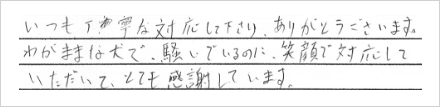 いつも丁寧な対応して下さり、ありがとうございます。
わがままな犬で、騒いでいるのに、笑顔で対応して
いただいて、とても感謝しています。